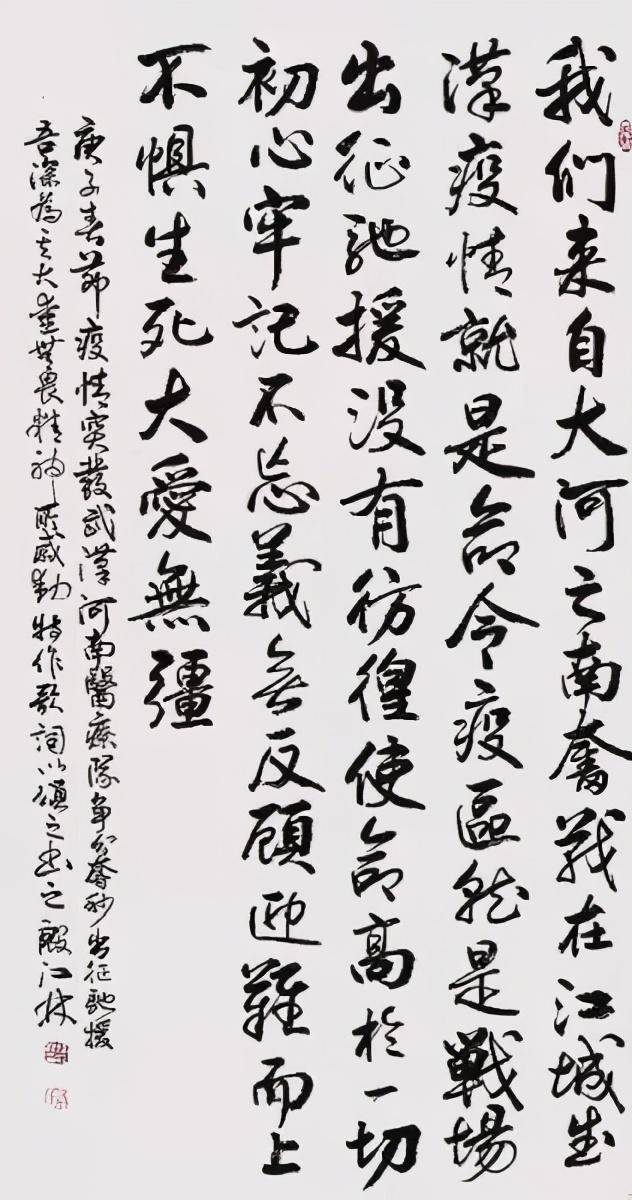 我们来自大河之南奮战在江城武
漢疫情就是命令疫區就是戰場
出征馳援没有彷徨使命高於一切
初心牢记不忘義无反顧迎難而上
不懼生死大愛無疆
庚子春節疫情突發武漢河南醫療隊争分奪秒出征馳援
吾深為其大愛無畏精神所感動特作歌詞以頌之书之殷江林